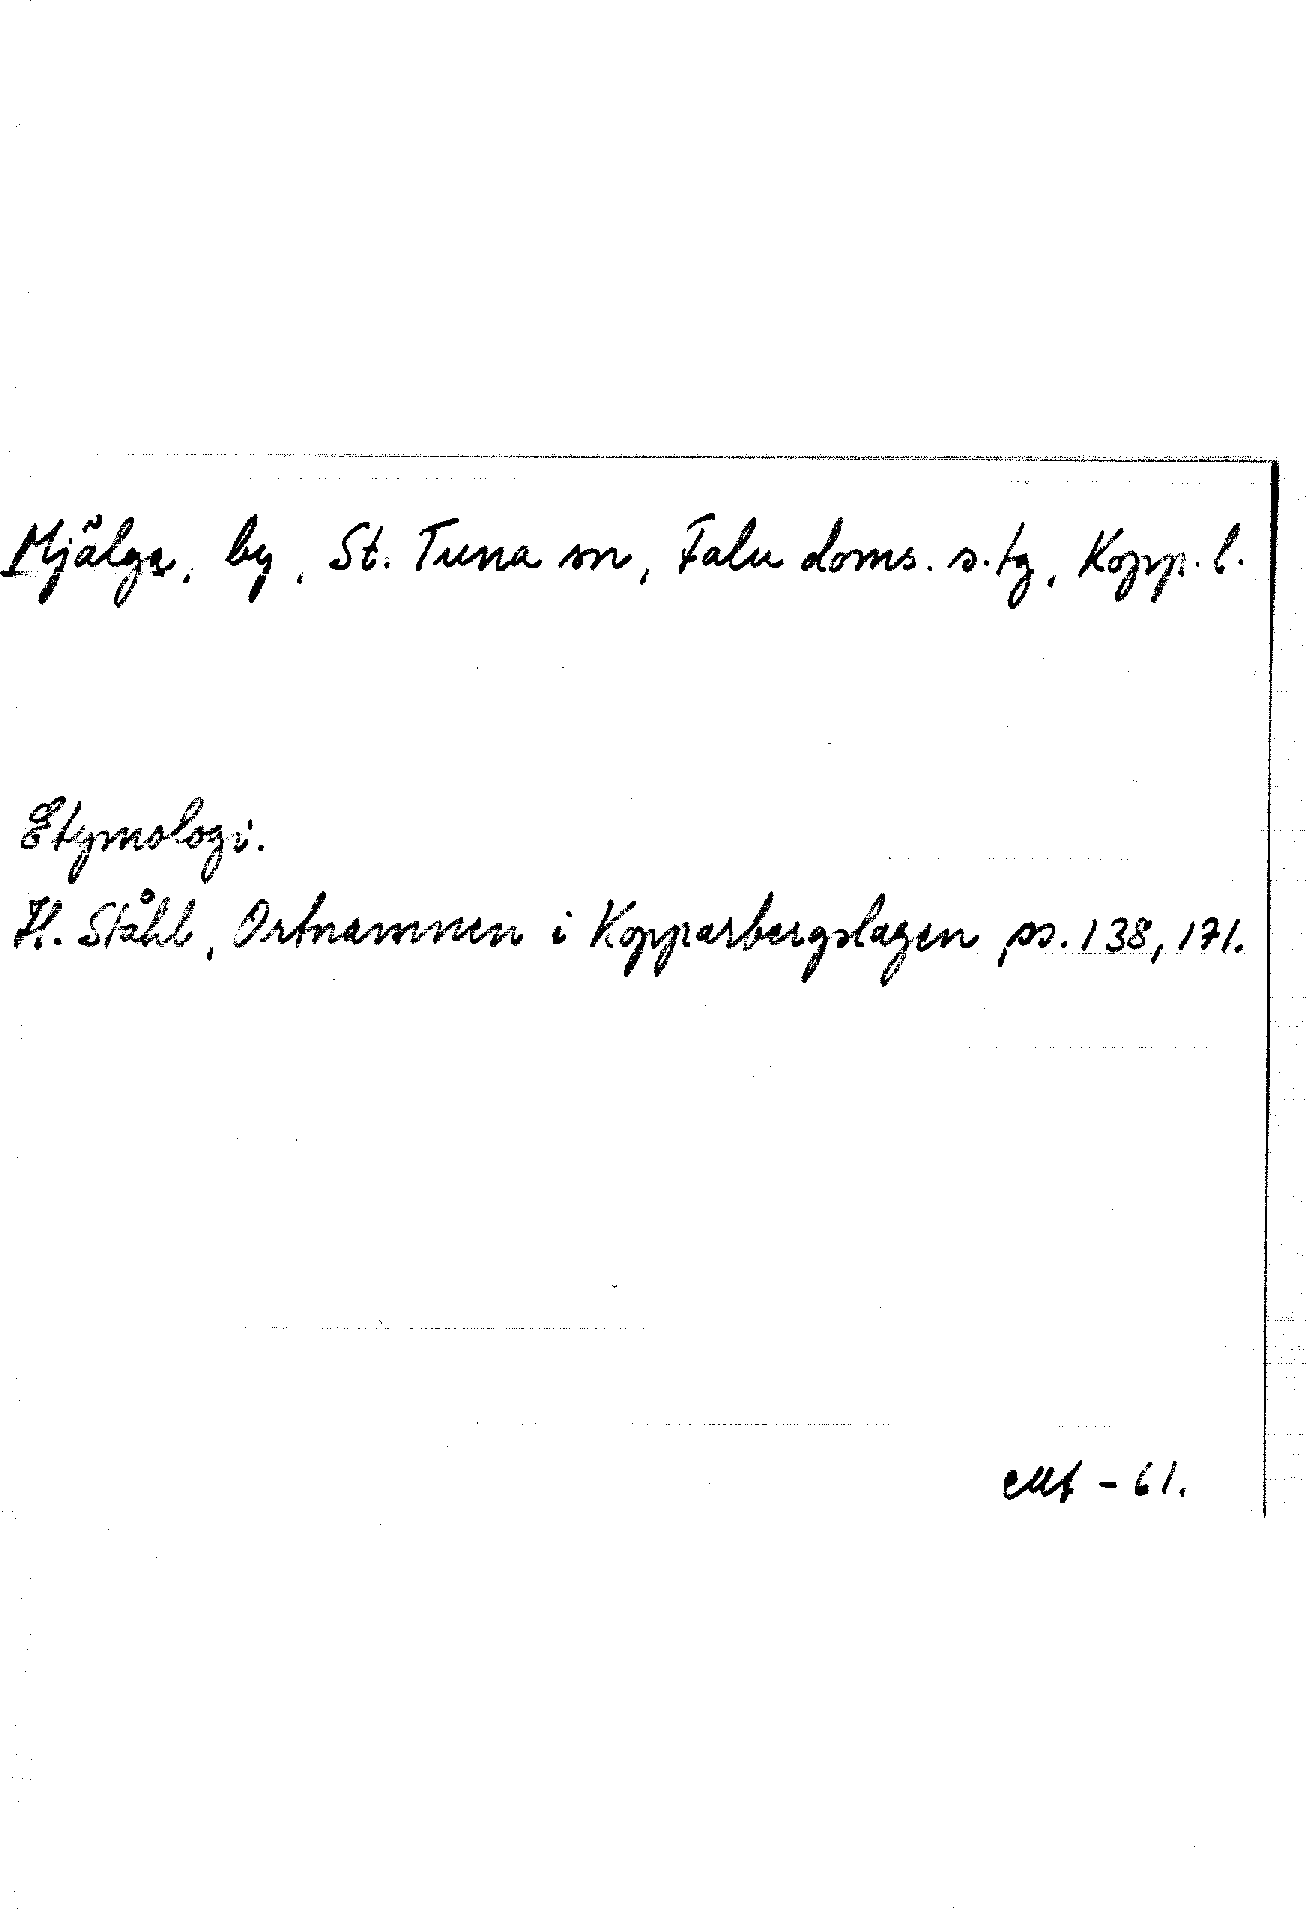 Mjälga, by, St. Tuna sn, Falu doms. s. tg, Kopp. l.
Etymologi.
H. Ståhl, Ortnamnen i Kopparbergslagen, ss. 138, 171.
-61.